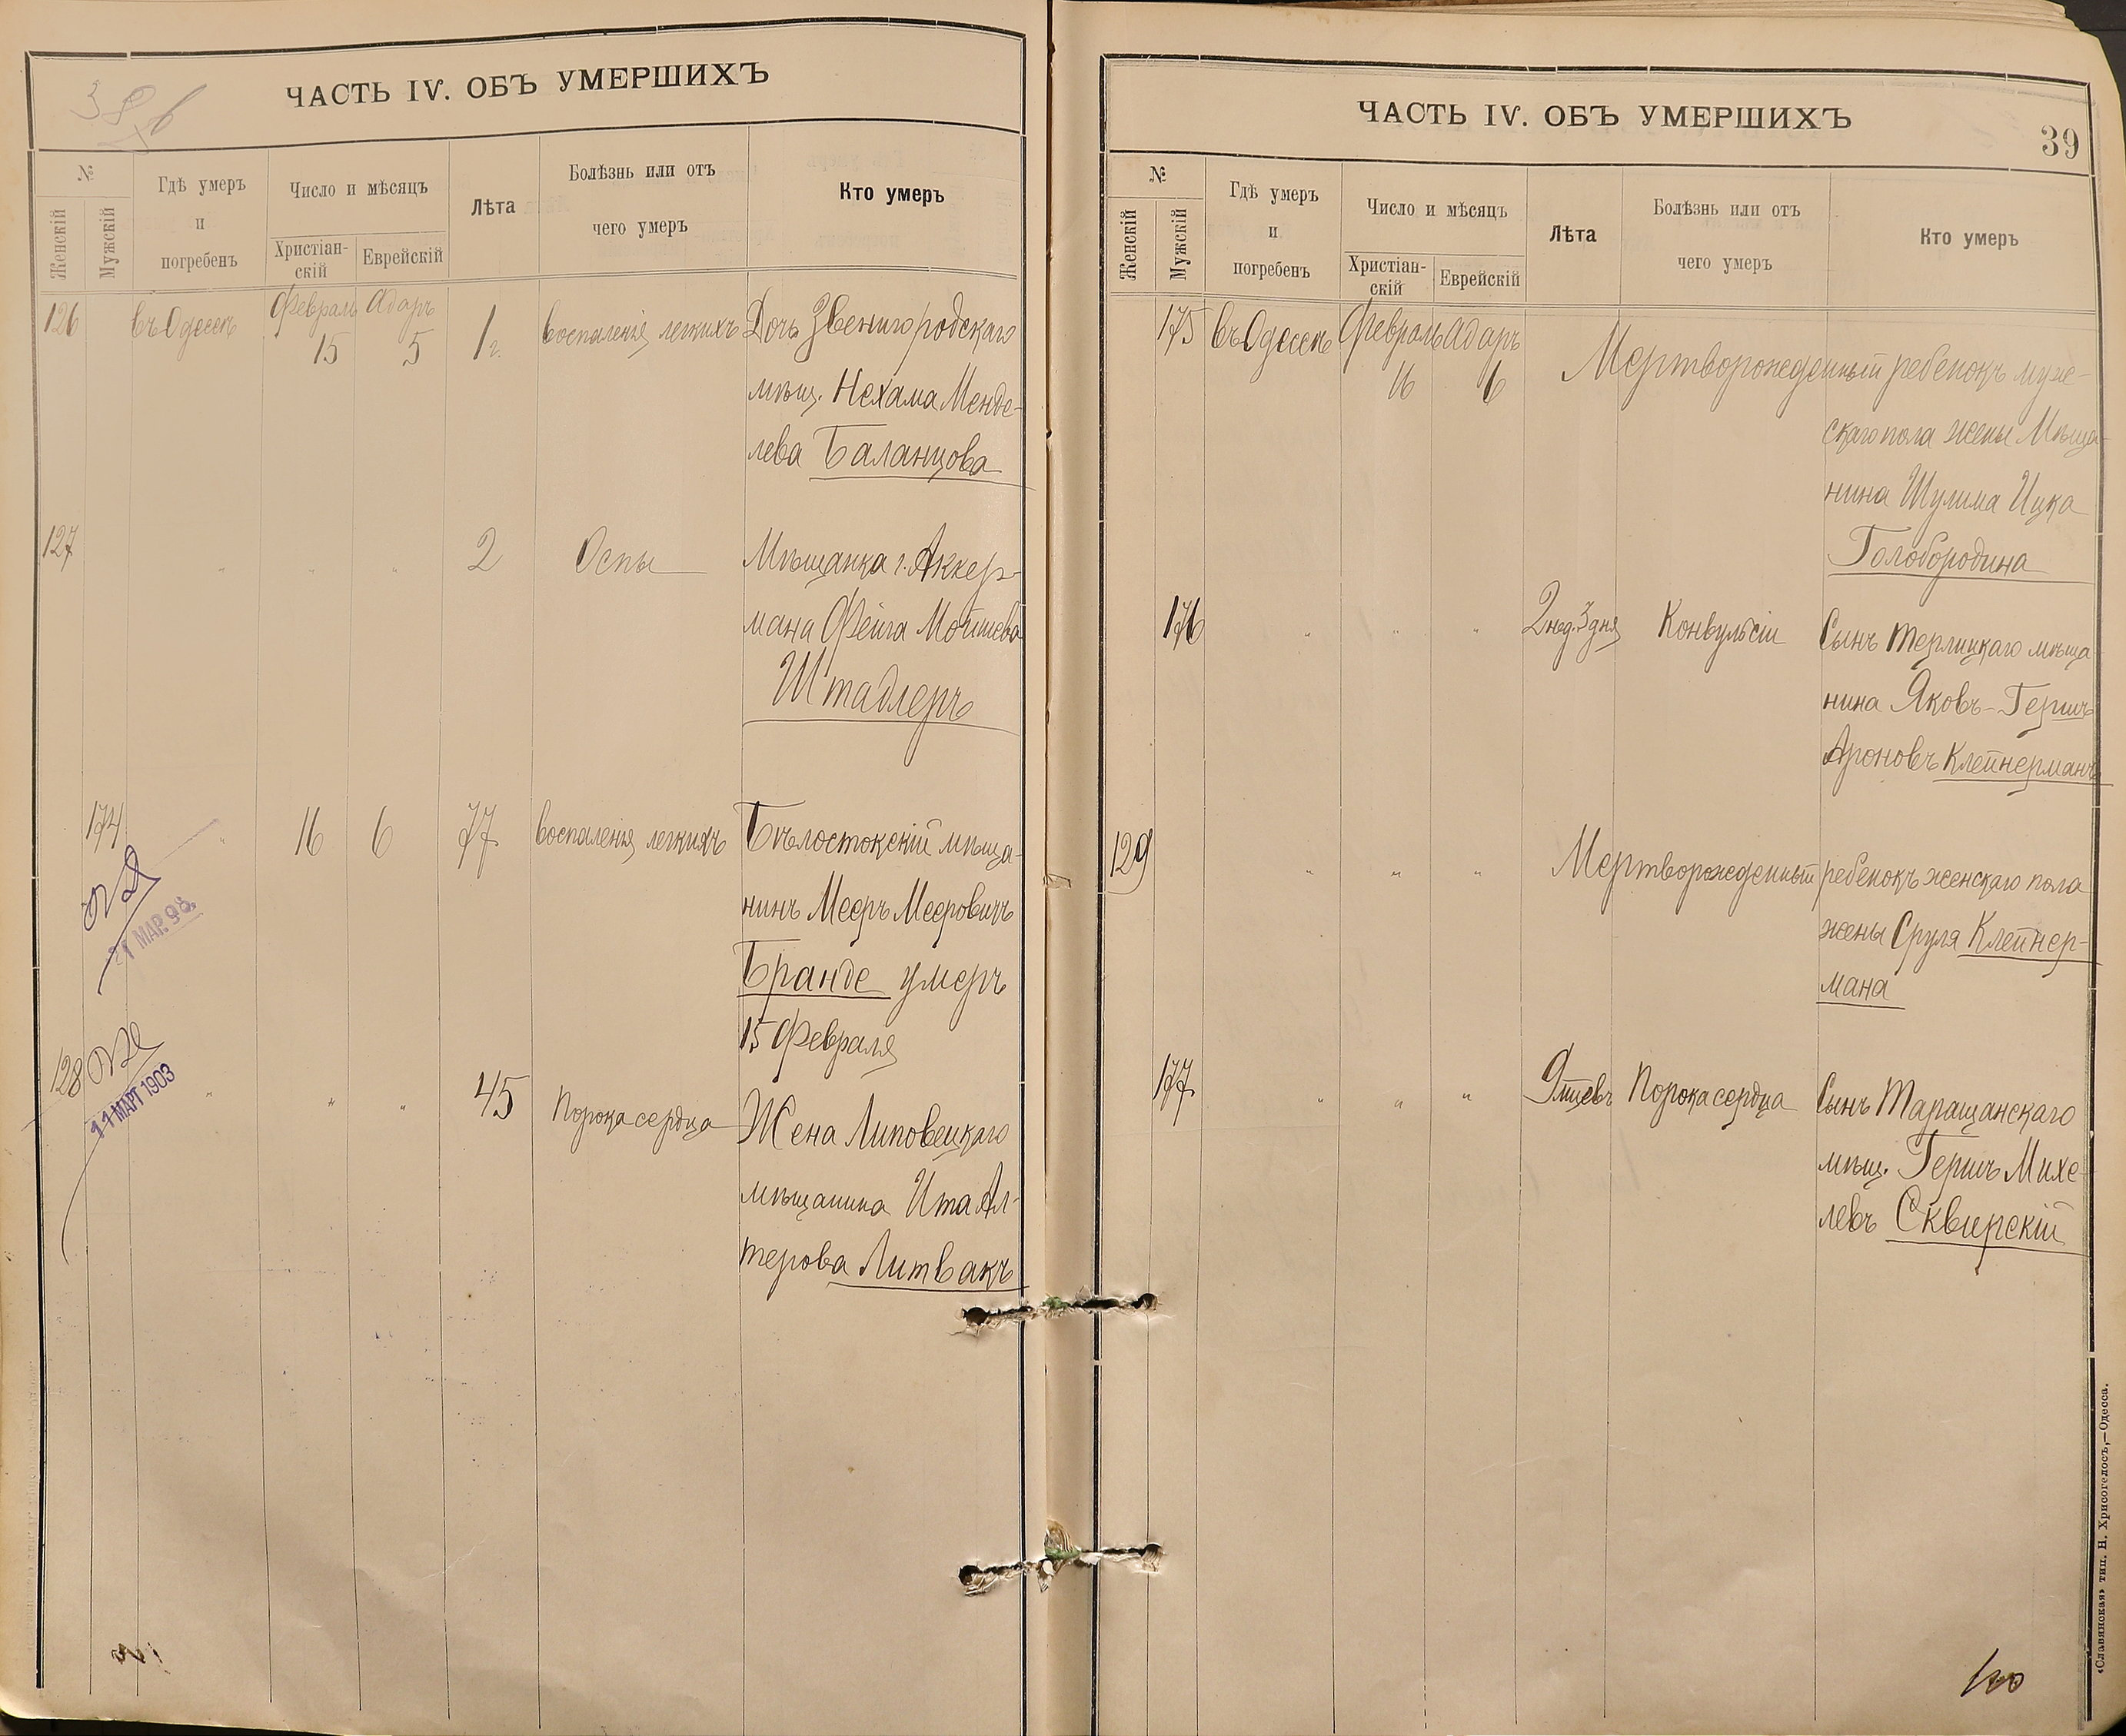 ЧАСТЬ IV. ОБЪ УМЕРШИХЪ
№
Женскій
Мужскій
Гдѣ умеръ
и
погребенъ
Число и мѣсяцъ
Христіан-
скій
Еврейскій
Лѣта
Болѣзнь или отъ
чего умеръ
Кто умеръ
126 въ Одессѣ Февраль Адаръ
15 5 1 г. воспаленія легкихъ Дочь Звенигородскаго
мѣщ. Нехама Менде-
лева Баланцова
127 " " " 2 Оспы Мѣщанка г. Аккер-
мана Фейга Мошкова
Штадлеръ
174 " 16 6 77 воспаленія легкихъ Бѣлостокскій мѣща-
нинъ Мееръ Мееровичъ
Бранде умеръ
15 Февраля
МАР. 98.
128 " " " 45 Порока сердца Жена Липовецкаго
мѣщанина Ита Ал-
терова Литвакъ
11 МАРТ 1903
ЧАСТЬ IV. ОБЪ УМЕРШИХЪ
39
№
Женскій
Мужскій
Гдѣ умеръ
и
погребенъ
Число и мѣсяцъ
Христіан-
скій
Еврейскій
Лѣта
Болѣзнь или отъ
чего умеръ
Кто умеръ
175 въ Одессѣ Февраль Адаръ
16 6 Мертворожденный ребенокъ муже-
скаго пола жены Мѣща-
нина Шулима Ицка
Голобородина
176 " " " 2 нед. 3 дня Конвульсіи Сынъ Терлицкаго мѣща
нина Яковъ-Гершъ
Ароновъ Клейнерманъ
129 " " " Мертворожденный ребенокъ женскаго пола
жены Сруля Клейнер-
мана
177 " " " 9 мцевъ Порока сердца Сынъ Таращанскаго
мѣщ. Гершъ Михе
левъ Сквирскій
«Славянская» тип. Н. Хрисогелосъ,—Одесса.